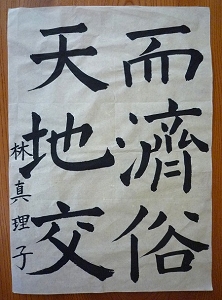 而濟俗
天地交
林真理子